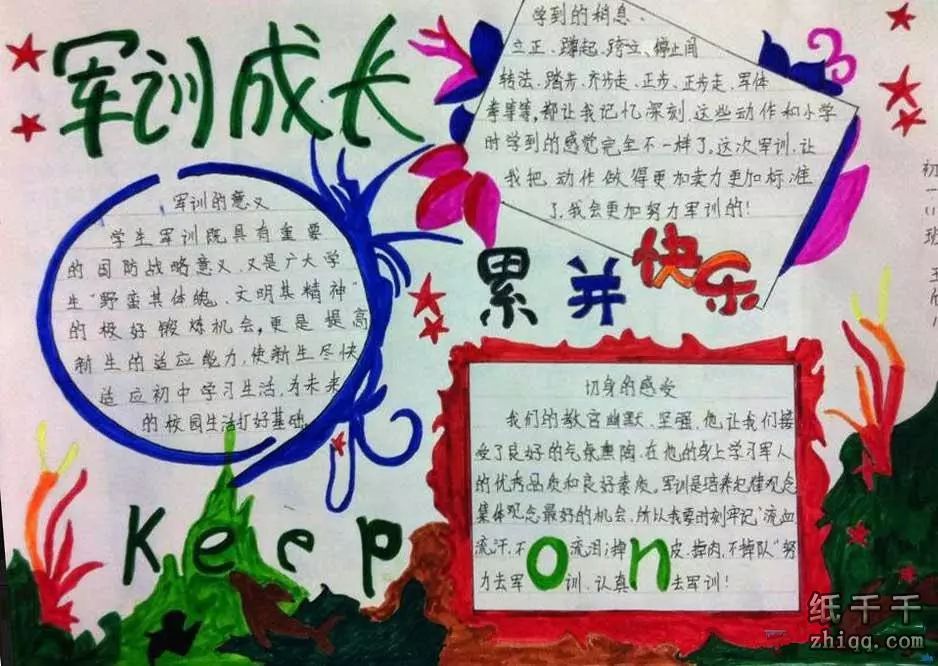 军训成长
学到的稍息、
立正、蹲起、跨立、停止间
转法、踏步、齐步走、正步、正步走、军体
拳等等,都让我记忆深刻.这些动作和小学
时学到的感觉完全不一样了。这次军训.让
我把动作做得更加卖力更加标准
了.我会更加努力军训的!
军训的意义
学生军训既具有重要
的国防战略意义.又是广大学
生"野蛮其体魄、文明其精神"
的极好锻炼机会,更是提高
新生的适应能力,使新生尽快
适应初中学习生活,为未来
的校园生活打好基础.
累并快乐
切身的感受
我们的教官幽默、坚强,他让我们接
受了良好的气息熏陶.在他的身上学习军人
的优秀品质和良好素质。军训是培养纪律观念
集体观念最好的机会.所以我要时刻牢记"流血
流汗,不流泪;掉皮.掉肉.不掉队"努
力去军训.认真去军训!
Keep on
初
一
班
纸千千
zhiqq.com